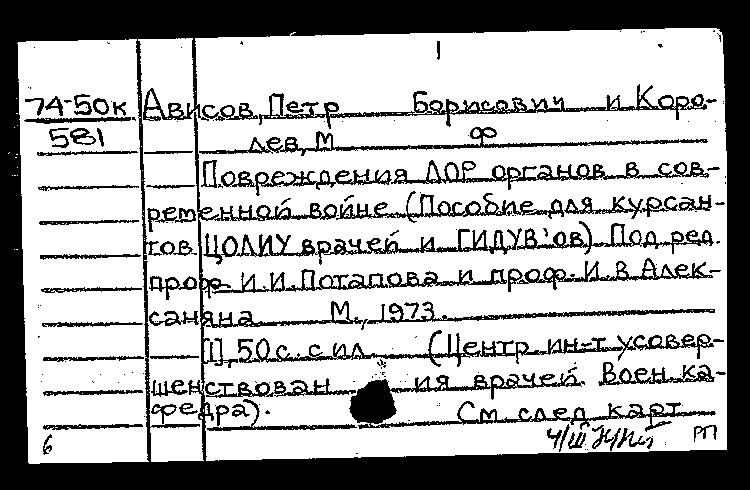 74-50к Ависов, Петр Борисович и Коро-
581 лев, М Ф
Повреждения ЛОР органов в сов-
ременной войне (Пособие для курсан-
тов ЦОЛИУ врачей и ГИДУВ'ов) Под ред.
проф. И.И. Потапова и проф. И.В Алек-
саняна М., 1973.
[1], 50 с. с ил. (Центр ин-т усовер-
шенствован ия врачей. Воен. ка-
федра). См. след карт
6 4/III РП